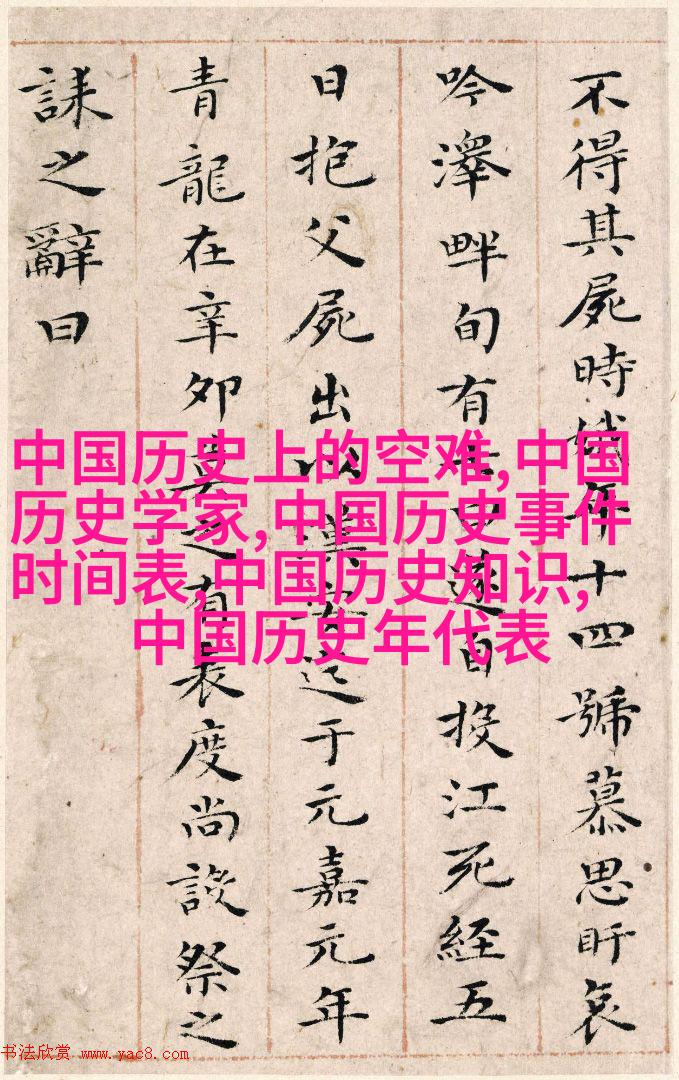 不得其屍時娥年十四號慕思盱哀
吟澤畔旬有七日遂自投江死經五
日抱父屍出以漢安迄于元嘉元年
青龍在辛卯莫之有表度尚設祭之
誄之辭曰
中国历史上的空难,中国
历史学家,中国历史事件
时间表,中国历史知识,
中国历史年代表
书法欣赏 www.yac8.com